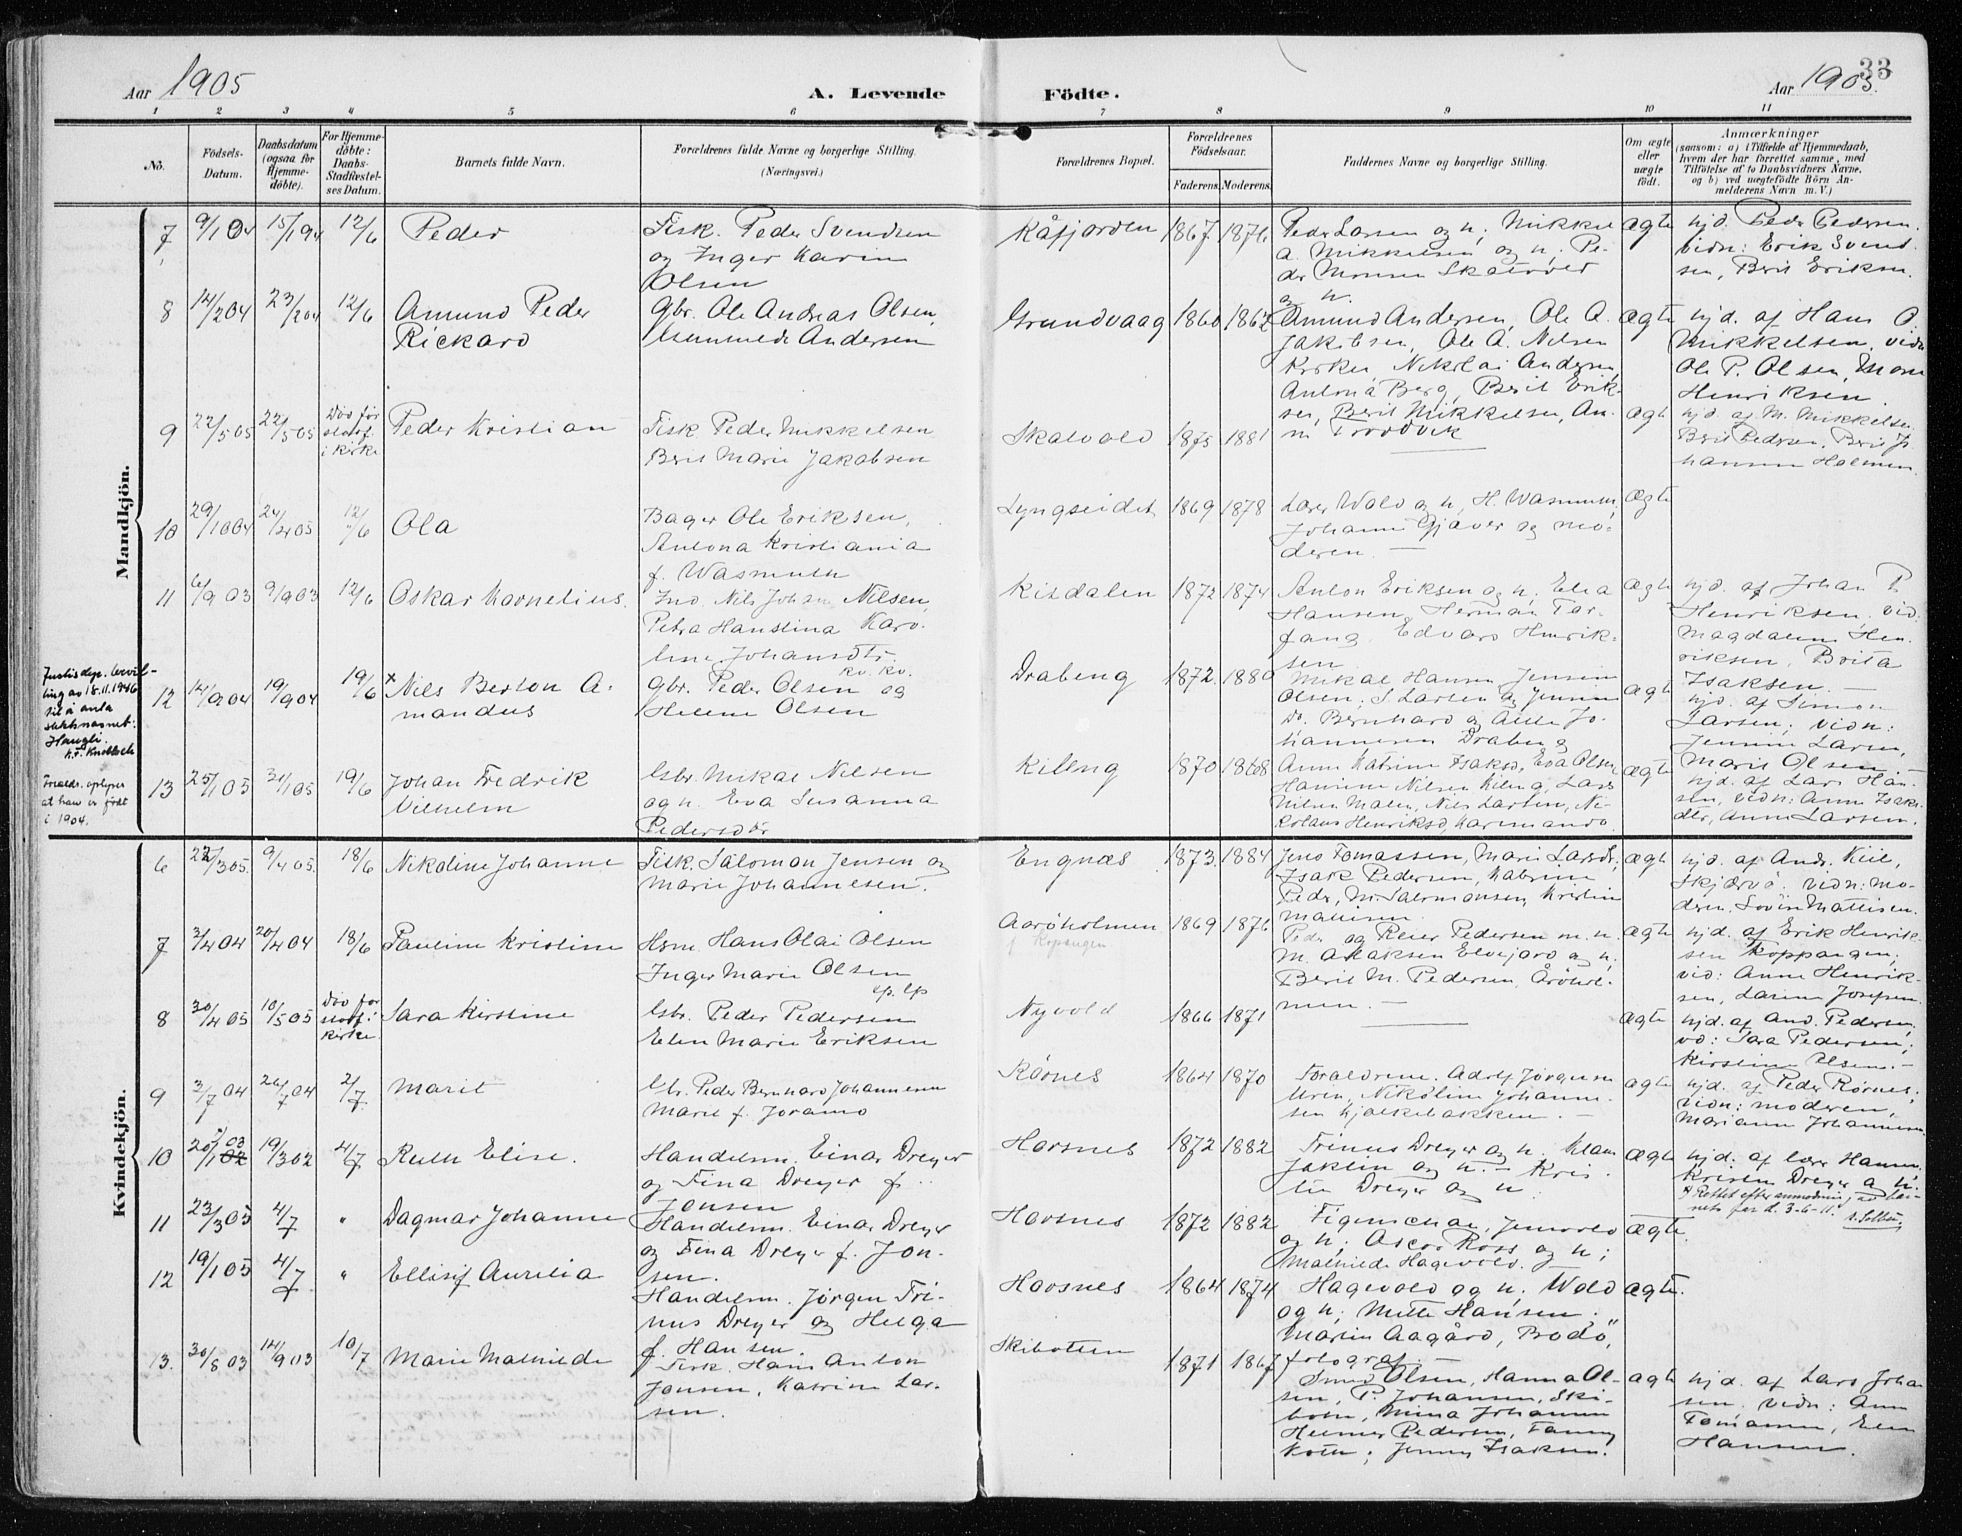 33
Aar 1905
A. Levende
Födte.
Aar 1905.
1 2 3 4 5 6 7 8 9 10 11
No.
Födsels-Datum.
Daabsdatum (ogsaa for Hjemmedöbte).
For Hjemmedöbte: Daabs-Stadfæstelses Datum.
Barnets fulde Navn.
Forældrenes fulde Navne og borgerlige Stilling.
(Næringsvei.)
Forældrenes Bopæl.
Forældrenes Födselsaar.
Faderens. Moderens.
Faddernes Navne og borgerlige Stilling.
Om ægte eller uægte födt.
Anmærkninger
(saasom: a) i Tilfælde af Hjemmedaab,
hvem der har forrettet samme, med
Tilföielse af to Daabsvidners Navne,
og b) ved uægtefödte Börn Anmelderens Navn m. V.)
Mandkjön.
7 9/1 04 15/1 94 12/6 Peder
Fisk. Peder Svendsen
og Inger Karin
Olsen
Kåfjorden 1867 1876
Peder Larsen og h; Mikkel
A. Mikkelsen og h; Pe-
der Monsen Skatvold
og h.
ægte
hjd. Peder Pedersen.
Vidn: Erik Svend-
sen, Berit Eriksen.
8 14/2 04 23/2 04 12/6 Amund Peder
Rickard
Gbr. Ole Andreas Olsen,
Andersen
Grundvaag 1860 1862
Amund Andersen, Ole A.
Jakobsen, Ole A. Nilsen
Kirker, Nikolai Andersen,
Antona Berg, Berit Erik-
sen, Berit Mikkelsen, An-
ægte
hjd. af Hans O
Mikkelsen, vidn
Ole P. Olsen, Mons
Henriksen.
9 22/5 05 22/5 05 Død før
stadf.
i kirke
Peder Kristian
Fisk Peder Mikkelsen
Berit Marie Jakobsen
Skatvold 1875 1881
ægte
hjd. af M. Mikkelsen
Berit Pedersen, Berit Jo
hansen Holmen.
10 29/10 04 24/2 05 12/6 Ola
Bager Ole Eriksen,
Antona Kristiania
f. Wasmuth
Lyngseidet 1869 1878
Lærer Wold og h, H. Wasmuth,
Johanne Gjæver og mo-
deren. —
ægte
11 6/9 03 9/9 03 12/6 Oskar Kornelius.
Ind. Nils Johan Nilsen,
Petra Hanstina Karo-
line Johansdtr.
kv. kv.
Kisdalen 1872 1874
Anton Eriksen og h; Elia
Hansen, Herman Tar-
fang, Edvard Henrik-
sen
ægte
hjd. af Johan P
Henriksen, vid:
Magdalene Hen-
riksen, Brita
Isaksen. —
Justisdep. bevil-
ling av 18.11.1946
til å anta
slektsnavnet:
Haugli.
12 14/9 04 19/9 04 19/6 × Nils Berton A-
mandus
Gbr. Peder Olsen og
Helene Olsen
Drabeng 1872 1880
Mikal Hansen, Jensine
Olsen; S. Larsen og Jensine
Do. Bernhard og Anne Jo-
hannesen Drabeng
ægte
hjd. af Simon
Larsen; vidn:
Jensine Larsen,
Marit Olsen
Foreldr. oplyser
at han er født
i 1904.
13 25/1 05 31/1 05 19/6 Johan Fredrik
Vilhelm
Gbr. Mikal Nilsen
og h. Eva Susanna
Pedersdtr
Kileng 1870 1868
Anne Katrine Isaksd, Eva Olsen,
Hansine Nilsen Kileng, Lars
Nilsen Malen, Nils Larsen, Ni-
kolaus Henriksd, Karen
ægte
hjd. af Lars Han-
sen, vidn: Anne Isaks-
dtr, Anne Larsen.
Kvindekjön.
6 22/3 05. 9/4 05. 18/6 Nikoline Johanne
Fisk. Salomon Jensen og
Marie Johannesen.
Engnæs 1873. 1884
Jens Tomassen, Marie Larsdtr,
Isak Pedersen, Katrine
Peds, M. Salomonsen, Kristin
Mattisen
ægte
hjd. af Andr. Kiil,
Skjærvø: vidn: Mo-
deren, Lovise Mattisen.
7 3/4 04 20/4 04 18/6 Pauline Kristine
Hsm. Hans Olai Olsen
Inger Marie Olsen
lp. lp
Aarøholmen
f. Kopangen
1869 1876
Peder og Reier Pedersen m. h.
M. A. Isaksen Elvejord og h;
Berit M. Pedersen, Årøhol-
men. —
ægte
hjd. af Erik Henrik-
sen Koppangen;
vid: Anne Henrik-
sen, Larine Josefsen
8 30/4 05 10/5 05 Død før
stadf. i
kirke.
Sara Kirstine
Gbr. Peder Pedersen
Elen Marie Eriksen
Nyvold 1866 1871
ægte
hjd. af And. Pedersen,
vd: Sara Pedersen;
Kirstine Olsen. —
9 3/7 04 26/7 04 2/7 Marit
Gbr. Peder Bernhard Johannesen
Marit f. Joramo
Rørnes 1864 1870
Forældrene. Adolf Jørgensen
Uren, Nikoline Johanne-
sen Kjelkebakken. —
ægte
hjd. af Peder Rørnes;
vidn: moderen,
Mariane Johannesen
10 20/1 03 02 19/3 02 4/7 Ruth Elise.
Handelsm. Einar Dreyer
og Fina Dreyer f.
Jensen
Havsnes 1872 1882
Trinus Dreyer og h. Klaus
Jaklin og h. — Kris-
tine Dreyer og h.
ægte
hjd. af lærer Hansen.
Kristen Dreyer og h.
Rettet efter anmodning, se bar-
nets far d. 3-6-11.
11 23/3 05 4/7 " Dagmar Johanne
Handelsm. Einar Dreyer
og Fina Dreyer f. Jen-
sen.
Havsnes 1872 1882
Figenschau, Jensvold
og h; Oscar Ross og h;
Mathilde Hagevold. —
ægte.
12 19/1 05 4/7 " Ellisif Aurelia
Handelsm. Jørgen Tri-
nus Dreyer og Helga
f. Hansen
Havsnes 1864 1874
Hagevold og h; Wold
og h; Mette Hansen;
Martin Aagård, Bodø,
fotograf. —
ægte.
13. 30/8 03 14/9 03 10/7 Marie Mathilde
Fisk. Hans Anton
Jensen, Katrine Lar-
sen.
Skibotten 1871 1867
Olsen, Hanna Ol-
sen, P. Johansen, Ski-
botn, Mina Johansen
Helmer Pedersen, Fanny
Koth; Jenny Isaksen.
ægte
hjd. af Lars Johan
sen. vidn: Ane
Tomasen, Elen
Hansen.